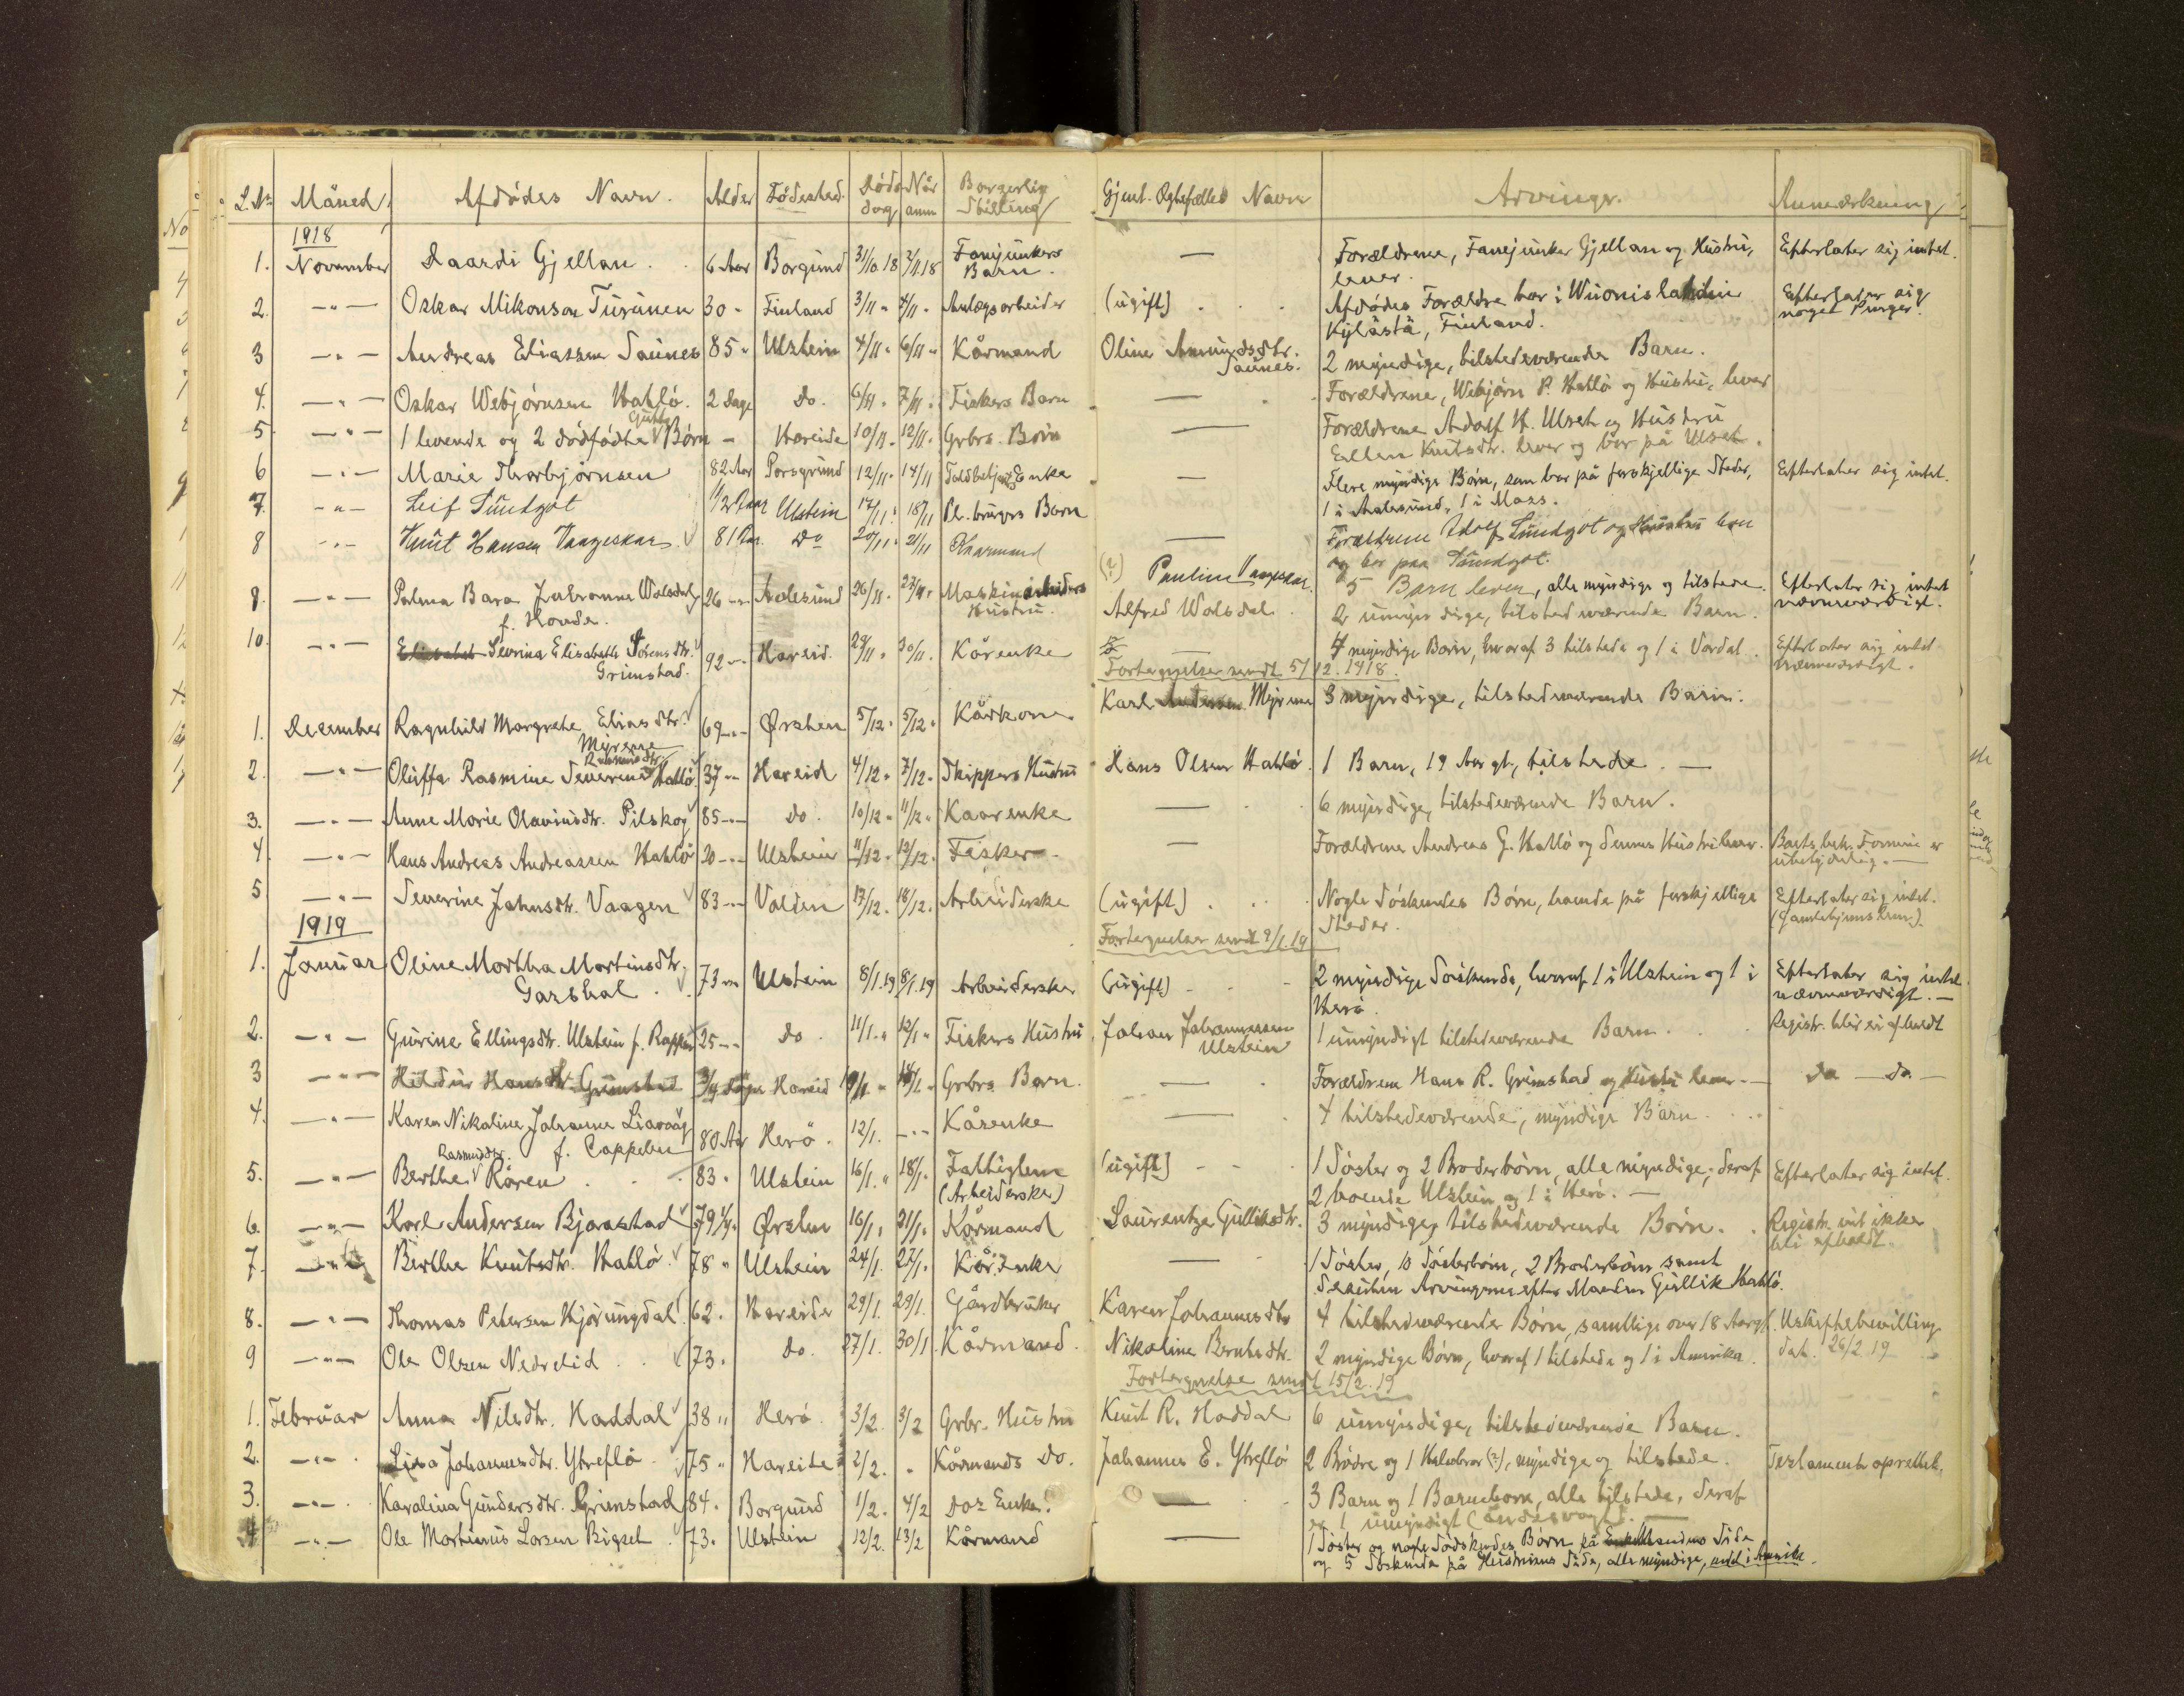 L.No Måned. Afdødes Navn. Alder Fødested. Døds dag Når anm Borgerlig Stilling Gjenl. Ægtefælles Navn Arvinger. Anmærkning
1918
1. November Daardi Gjellan. 6 Aar Borgund 31/10.18 2/11.18 Fanejunkers Barn. — Forældrene, Fanejunker Gjellan og Hustru, lever. Efterlater sig intet.
2. —"— Oskar Mikonson Turunen 30 " Finland 3/11 " 4/11 " Anlægsarbeider (ugift) Afdødes Forældre bor i Kylästä, Finland. Efterlater sig nogen Penger.
3 —"— Andreas Eliassen Saunes 85 " Ulstein 4/11 " 6/11 " Kårmand Oline Amundsdtr. Saunes. 2 myndige, tilstedeværende Barn.
4. —"— Oskar Webjørnsen Hatlø. 2 Dage Do. 6/11 " 7/11 " Fiskers Barn — Forældrene, Webjørn P. Hatlø og Hustru, lever
5 —"— 1 levende og 2 dødfødte Gutte Børn — Hareide 10/11 " 12/11 " Grbrs. Børn — Forældrene Adolf H. Ulset og Hustru Ellen Knutsdtr. lever og bor på Ulset.
6 —"— Marie Thorbjørnsen 82 Aar Porsgrund 12/11 " 14/11 Enke — Flere myndige Børn, som bor på forskjellige Steder, 1 i Aalesund, 1 i Moss. Efterlater sig intet.
7. —"— Leif Sundgot 1/2 Aar Ulstein 17/11 18/11 Barn — Forældrene Adolf Sundgot og Hustru lever og bor paa Sundgot.
8 —"— Knut Hansen Vaageskar. 81 Aar. Do 20/11 " 21/11 Kaarmand (?) Pauline Vaageskar. 5 Barn lever, alle myndige og tilstede. Efterlater sig intet nævneværdigt.
8. —"— Palma Bara Johanna Walsdal f. Hovde. 26 —"— Aalesund 26/11 " 27/11 " Maskinarbeiders Hustru. Alfred Walsdal 2 umyndige, tilstedeværende Barn.
10. —"— Sevrina Elisabeth Jetensdtr. Grimstad. 92 —"— Hareid. 29/11 " 30/11. Kårenke — 4 myndige Børn, hvoraf 3 tilstede og 1 i Vardal. Efterlater sig intet nævneværdigt.
Fortegnelse sendt 5/12.1918.
1. December Ragnhild Margrethe Eliasdtr. Myrene 69 —"— Ørsten 5/12 " 5/12 " Kårkone. Karl Andersen Myrene 3 myndige, tilstedeværende Barn.
2. —"— Oluffa Rasmine Severine Rasmusdtr. Hatlø. 37 —"— Hareid 4/12 " 7/12 " Skippers Hustru Hans Olsen Hatlø. 1 Barn, 19 Aar gt., tilstede. —
3. —"— Anne Marie Olavinsdtr. Pilskog 85 —"— Do. 10/12 " 11/12 " Kaarenke — 6 myndige, tilstedeværende Barn.
4. —"— Hans Andreas Andreassen Hatlø 20 —"— Ulstein 11/12 " 12/12 " Fisker — — Forældrene Andreas G. Hatlø og Hustru lever. Formue er ubetydelig. —
5. —"— Severine Johnsdtr. Vaagen 83 —"— Volden 17/12. 18/12. Arbeiderske (ugift) Nogle Søskendes Børn, boende på forskjellige Steder. Efterlater sig intet. (Gamlehjemslem).
1919
Fortegnelse sendt 9/1.19
1. Januar Oline Morthea Martinsdtr. Garshol. 73 —"— Ulstein 8/1.19 8/1.19 Arbeiderske (ugift) 2 myndige Søskende, hvoraf 1 i Ulstein og 1 i Herø. Efterlater sig intet nævneværdigt. —
2. —"— Gurine Ellingsdtr. Ulstein f. 25 —"— Do. 11/1. " 12/1 " Fiskers Hustru Johan Johannessen Ulstein 1 umyndigt tilstedeværende Barn. Registr. blir ei afholdt
3 —"— Hildur Hansdtr. Grimstad 3/4 Hareid 9/1. " 14/1 " Grbrs Barn. — Forældrene Hans R. Grimstad og Hustru lever. — Do — Do —
4. —"— Karen Nikoline Johanna Liavaag f. Cappelen 80 Aar Herø. 12/1. —"— Kårenke — 4 tilstedeværende, myndige Barn
5. —"— Berthe Rasmusdtr. Røren 83. Ulstein 16/1. " 18/1 " Fattiglem (Arbeiderske) (ugift) 1 Søster og 2 Broderbørn, alle myndige, deraf 2 boende Ulstein og 1 i Herø. — Efterlater sig intet.
6. —"— Karl Andersen Bjaastad 79 1/4 " Ørsten 16/1 " 21/1 " Kårmand Laurentze Gulliksdtr. 3 myndige, tilstedeværende Børn. Registr. vil ikke bli afholdt.
7. —"— Berthe Knutsdtr. Hatlø. 78 " Ulstein 24/1. 27/1. Kår.Enke — 1 Søster, 10 Søsterbørn, 2 Broderbørn samt desuten Arvingerne efter Manden Gullik Hatlø.
8. —"— Thomas Petersen Hjørungdal 62. Hareide 29/1. 29/1. Gårdbruker Karen Johannesdtr 4 tilstedeværende Børn, samtlige over 18 Aar gt. Uskiftebevilling dat. 26/2 19
9 —"— Ole Olsen Nedrelid 73. Do. 27/1. 30/1 Kårmand. Nikoline Berntsdtr. 2 myndige Børn, hvoraf 1 tilstede og 1 i Amerika.
Fortegnelse sendt 15/2.19
1. Februar Anna Nilsdtr. Haddal 38 " Herø. 3/2. 3/2 Grbr. Hustru Knut R. Haddal 6 umyndige, tilstedeværende Barn.
2. —"— Lina Johannesdtr. Ytreflø 75 " Hareide 2/2. " Kårmands Do. Johannes E. Ytreflø 2 Brødre og 1 Halvbror (?), myndige og tilstede. Testamente oprettet.
3. —"— Karolina Gundersdtr. Grimstad 84. Borgund 1/2. 4/2 Do = Enke. — 3 Barn og 1 Barnebarn, alle tilstede, deraf er 1 umyndigt (åndssvagt). —
4 —"— Ole Martinus Larsen Bigset 73. Ulstein 12/2. 13/2 Kårmand — 1 Søster og nogle Søskendes Børn på Mandens Side og 5 Søskende på Hustruens Side, alle myndige, in Amerika.